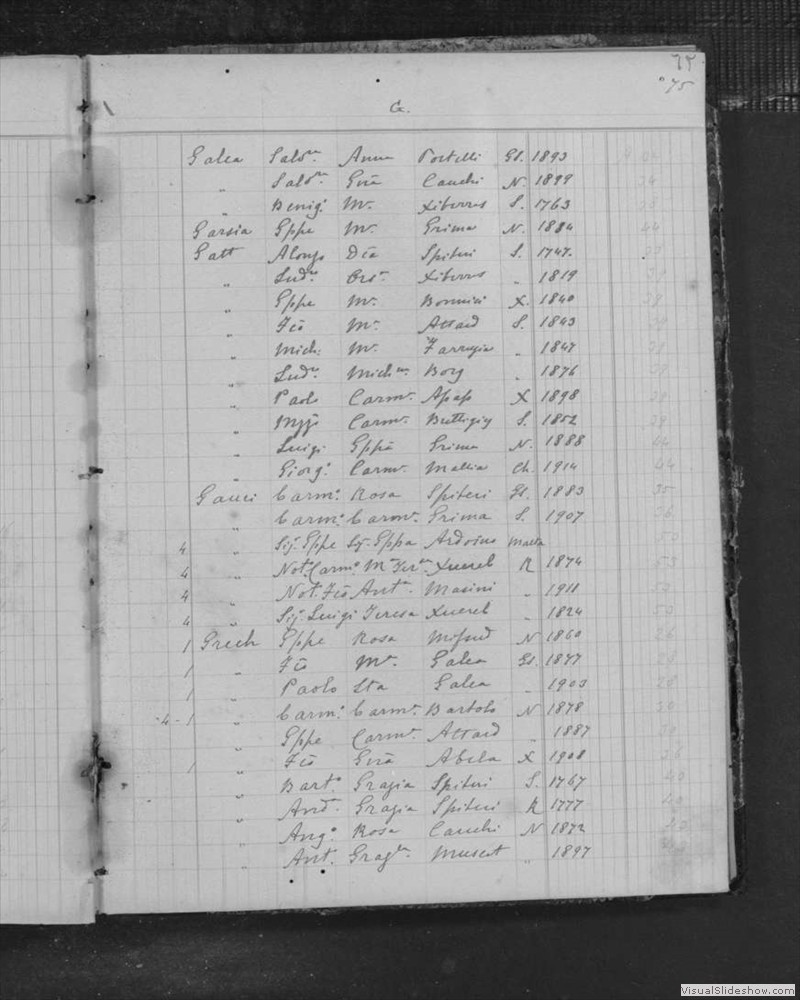 75
75
G.
Galea Salvre Anna Portelli Gl. 1893
„ Salvre Gna Cauchi N. 1899
„ Benigo Ma Xiberras S. 1763
Garsia Gppe Ma Grima N. 1884
Gatt Alonzo Dca Spiteri S. 1747.
„ Ludco Orsa Xiberras „ 1819
„ Gppe Ma Bonnici X. 1840
„ Fco Ma Attard S. 1843
„ Mich: Ma Farrugia „ 1847
„ Borg „ 1876
„ Paolo Carma Apap X 1898
„ Carma Buttigieg S. 1852
„ Luigi Gppa Grima N. 1888
„ Giorgo Carma Mallia Ch. 1914
Gauci Carmo Rosa Spiteri Gl. 1883
„ Carmo Carma Grima S. 1907
4 „ Sig. Gppe Sig. Gppa Ardoino Malta
4 „ Not. Carmo Xuereb R 1874
4 „ Not. Fco Anta Masini „ 1911
4 „ Sig. Luigi Teresa Xuereb „ 1824
1 Grech Gppe Rosa Mifsud N 1860
1 „ Fco Ma Galea Gl. 1877
1 „ Paolo Sta Galea „ 1903
4-1 „ Carmo Carma Bartolo N 1878
„ Gppe Carma Attard „ 1887
1 „ Fco Gna Abela X 1908
„ Barto Grazia Spiteri S. 1767
„ And. Grazia Spiteri R 1777
„ Ango Rosa Cauchi N 1872
„ Ant. Grazla Muscat „ 1897
VisualSlideshow.com